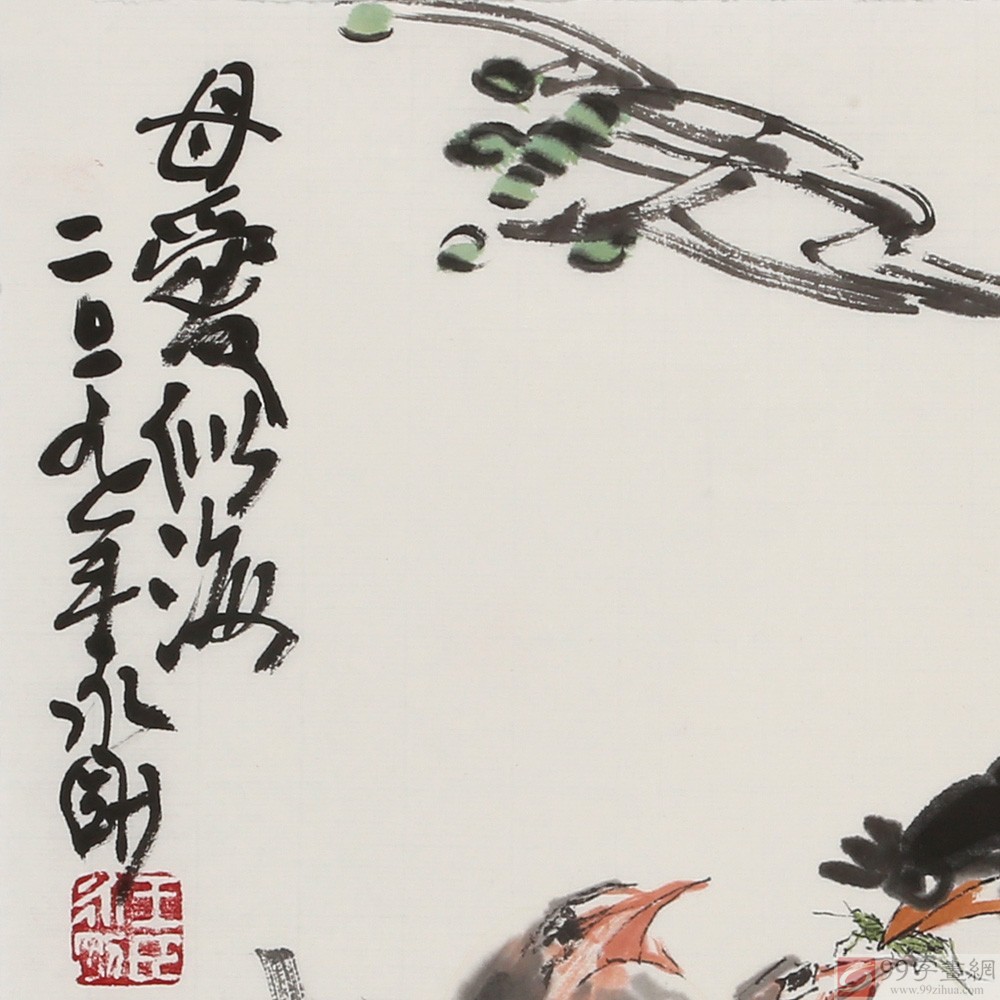 母愛似海
二〇一九年永剛
99字畫網
www.99zihua.com